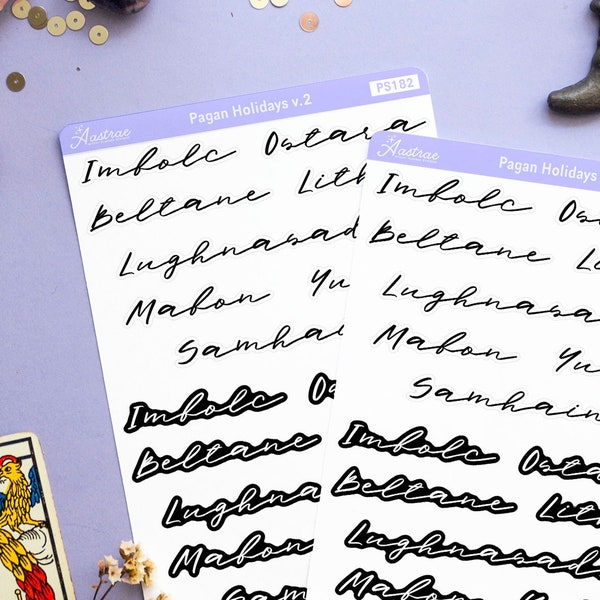 Aastrae
Pagan Holidays v.2
PS182
Imbolc Ostara
Beltane Lith
Lughnasad
Mabon Yu
Samhai
Imbolc Os
Beltane
Lughna
Mabon
Samh
Aastrae
Pagan Holidays
Imbolc Os
Beltane Li
Lughnasa
Mabon Yu
Samhain
Imbolc Osta
Beltane Lit
Lughnasad
Mabon Yu